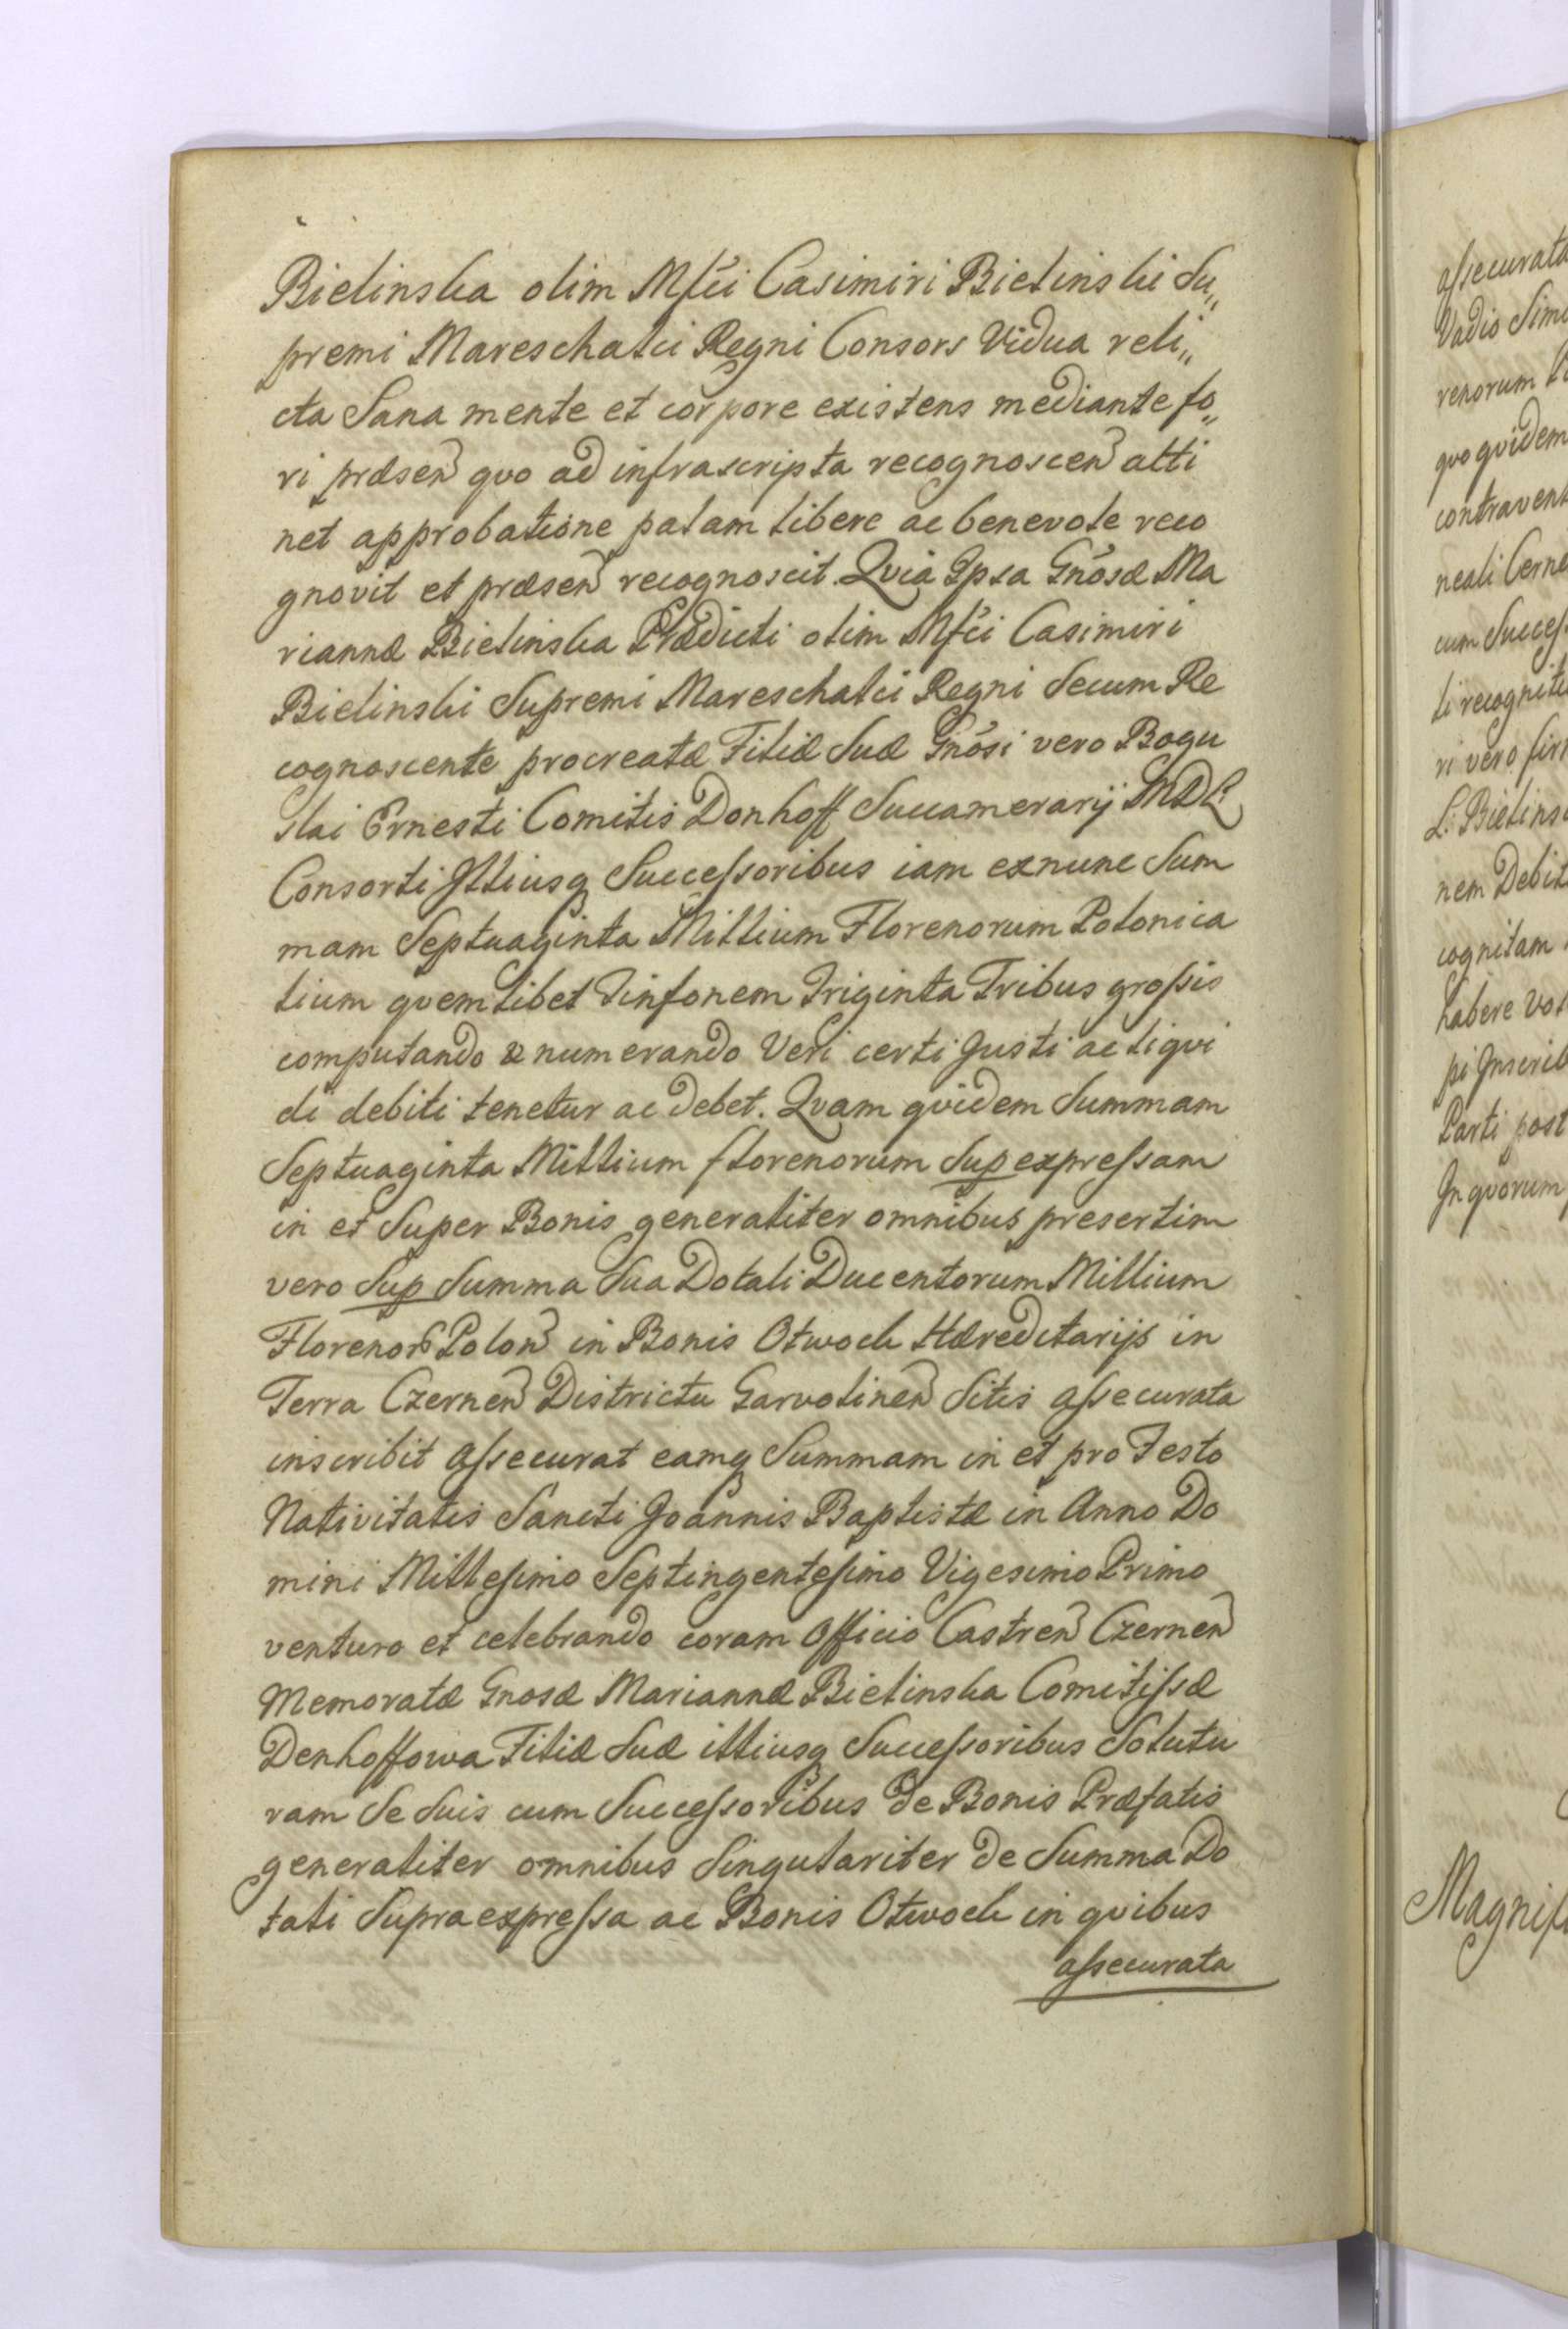 Bielinska olim Mfci Casimiri Bielinski Su„
premi Mareschalci Regni Consors Vidua reli„
cta Sana mente et corpore existens mediante fo„
ri præsen qvo ad infrascripta recognoscen atti
net approbatione palam libere ac benevole reco
gnovit et præsen recognoscit. Qvia Ipsa Gnosæ Ma
riannæ Bielinska Prædicti olim Mfci Casimiri
Bielinski Supremi Mareschalci Regni Secum Re
cognoscente procreatæ Filiæ Suæ Gnosi vero Bogu
slai Ernesti Comitis Donhoff Succamerarij MDL:
Consorti Illiusq Successoribus iam exnunc Sum
mam Septuaginta Millium Florenorum Polonica
lium qvemlibet Tinfonem Triginta Tribus grossis
computando & numerando Veri certi Justi ac liqvi
di debiti tenetur ac Debet. Qvam qvidem Summam
Septuaginta Millium florenorum Sup expressam
in et Super Bonis generaliter omnibus presertim
vero Sup Summa Sua Dotali Ducentorum Millium
Florenor Polon in Bonis Otwock Hæreditarijs in
Terra Czernen Districtu Garvolinen Sitis assecurata
inscribit assecurat eamq Summam in et pro Festo
Nativitatis Sancti Joannis Baptistæ in Anno Do
mini Millesimo Septingentesimo Vigesimo Primo
venturo et celebrando coram Officio Castren Czernen
Memoratæ Gnosæ Mariannæ Bielinska Comitissæ
Denhoffowa Filiæ Suæ illiusq Successoribus Solutu
ram Se Suis cum Successoribus de Bonis Præfatis
generaliter omnibus Singulariter de Summa Do
tali Supra expressa ac Bonis Otwock in qvibus
assecurata
assecurata
Vadio Sim
renorum
qvo qvidem
contraven
neali Cerne
cum Succes
li recogniti
ri vero fir
L: Bielins
nem Debit
cognitam
habere Vo
pi Inscrib
Parti post
In qvorum
Magnif